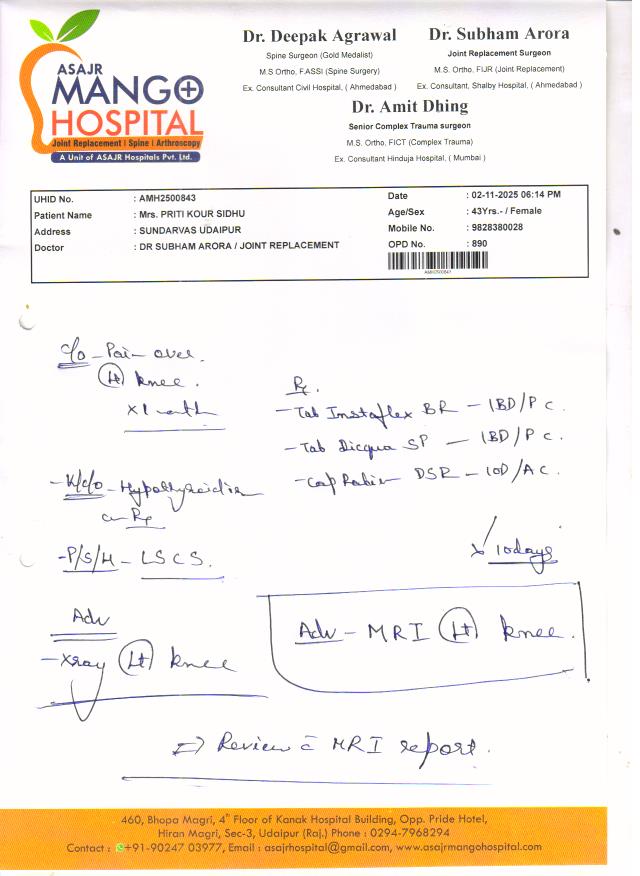 Dr. Deepak Agrawal
Spine Surgeon (Gold Medalist)
M.S Ortho, F.ASSI (Spine Surgery)
Ex. Consultant Civil Hospital, ( Ahmedabad )
Dr. Subham Arora
Joint Replacement Surgeon
M.S. Ortho, FIJR (Joint Replacement)
Ex. Consultant, Shalby Hospital, ( Ahmedabad )
Dr. Amit Dhing
Senior Complex Trauma surgeon
M.S. Ortho, FICT (Complex Trauma)
Ex. Consultant Hinduja Hospital, ( Mumbai )
ASAJR
MANGO
HOSPITAL
Joint Replacement | Spine | Arthroscopy
A Unit of ASAJR Hospitals Pvt. Ltd.
UHID No. : AMH2500843
Patient Name : Mrs. PRITI KOUR SIDHU
Address : SUNDARVAS UDAIPUR
Doctor : DR SUBHAM ARORA / JOINT REPLACEMENT
Date : 02-11-2025 06:14 PM
Age/Sex : 43Yrs.- / Female
Mobile No. : 9828380028
OPD No. : 890
AMH2500843
C/O - Pain over
(Lt) knee.
x 1 month
- K/C/O - Hypothyroidism
on Rx
- P/S/H - LSCS.
Adv
- Xray (Lt) knee
Rx.
- Tab Instaflex BR - 1BD/PC.
- Tab Dicqua SP - 1BD/PC.
- Cap DSR - 1OD/AC.
x 10days
Adv - MRI (Lt) knee.
⇒ Review c̄ MRI report.
460, Bhopa Magri, 4th Floor of Kanak Hospital Building, Opp. Pride Hotel,
Hiran Magri, Sec-3, Udaipur (Raj.) Phone : 0294-7968294
Contact : +91-90247 03977, Email : asajrhospital@gmail.com, www.asajrmangohospital.com